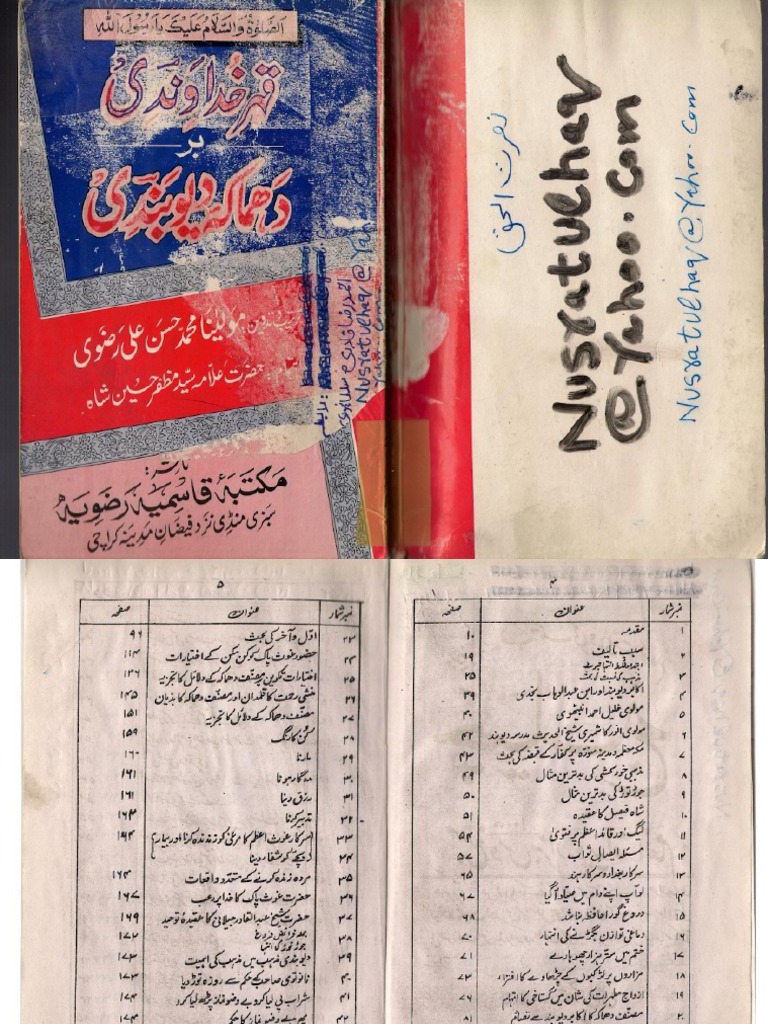 الصلوٰة والسلام علیک یا رسول اللہ
قہر خداوندی
بر
دھماکہ دیوبندی
مولینا محمد حسن علی رضوی
حضرت علامہ سید مظفر حسین شاہ
ناشر:
مکتبۂ قاسمیہ رضویہ
سبزی منڈی نزد فیضان مدینہ کراچی
احمد رضا قادری
Nusratulhaq
@Yahoo.Com
نصرت الحق
Nusratulhaq
@Yahoo.Com
Nusratulhaq@Yahoo.Com
نمبر شمار عنوان صفحہ
۱ مقدمہ ۱۰
۲ سبب تالیف ۱۹
۳ ۲۵
۴ اکابر دیوبند اور ابن عبدالوہاب نجدی ۳۹
۵ مولوی خلیل احمد انبیٹھوی ۴۰
۶ مولوی انور کاشمیری شیخ الحدیث مدرسہ دیوبند ۴۲
۷ مکہ معظمہ و مدینہ منورہ پر کفار کے قبضہ کی بحث ۴۳
۸ مذہبی خودکشی کی بدترین مثال ۴۹
۹ جوڑ توڑ کی بدترین مثال ۵۰
۱۰ شاہ فیصل کا عقیدہ ۵۱
۱۱ لیگ اور قائد اعظم پر فتویٰ ۵۴
۱۲ مسئلہ ایصال ثواب ۵۷
۱۳ سرکار بغداد و سرکار ہند ۶۵
۱۴ لو آپ اپنے دام میں صیاد آ گیا ۶۷
۱۵ دروغ گو را حافظہ نباشد ۶۸
۱۶ دماغی توازن بگڑنے کی انتہاء ۷۰
۱۷ ختم میں ستر ہزار چھوہارے ۷۱
۱۸ مزاروں پر لڑکیوں کے چڑھاوے کا افتراء ۷۳
۱۹ ازواج مطہرات کی شان میں گستاخی کا اتہام ۷۶
۲۰ مصنف دھماکہ کا اکابر دیوبند سے ۸۱
۵
نمبر شمار عنوان صفحہ
۲۳ اول و آخر کی بحث ۹۶
۲۴ حضور غوث پاک کو کن مکن کے اختیارات ۱۱۴
۲۵ اختیارات تکوین پر مصنف دھماکہ کے دلائل کا تجزیہ ۱۳۶
۲۶ منشی رحمت کا قلمدان اور مصنف دھماکہ کا ہذیان ۱۴۵
۲۷ مصنف دھماکہ کے دلائل کا تجزیہ ۱۵۱
۲۸ کن کا رنگ ۱۵۹
۲۹ مارنا ۱۶۰
۳۰ مددگار ہونا ۱۶۱
۳۱ رزق دینا ۱۶۱
۳۲ تدبیر کرنا ۱۶۳
۳۳ سرکار غوث اعظم کا مرغی کو زندہ کرنا اور بیمار ۱۶۴
۳۴ بچے کو شفا دینا
۳۵ مردہ زندہ کرنے کے متعدد واقعات ۱۶۴
۳۶ حضرت غوث پاک کا خدا پر رعب ۱۶۷
۳۷ حضرت شیخ عبدالقادر جیلانی کا عقیدہ توحید ۱۶۹
۳۸ ۱۷۲
۳۹ دیوبندی مذہب میں مذہب کی اہمیت ۱۷۳
۴۰ نانوتوی صاحب کے حکم سے روزہ توڑ دیا ۱۷۳
۴۱ شراب پی لیا کرو بے وضو نماز پڑھ لیا کرو ۱۷۴
۴۲ بے وضو نماز کا حکم ۱۷۴